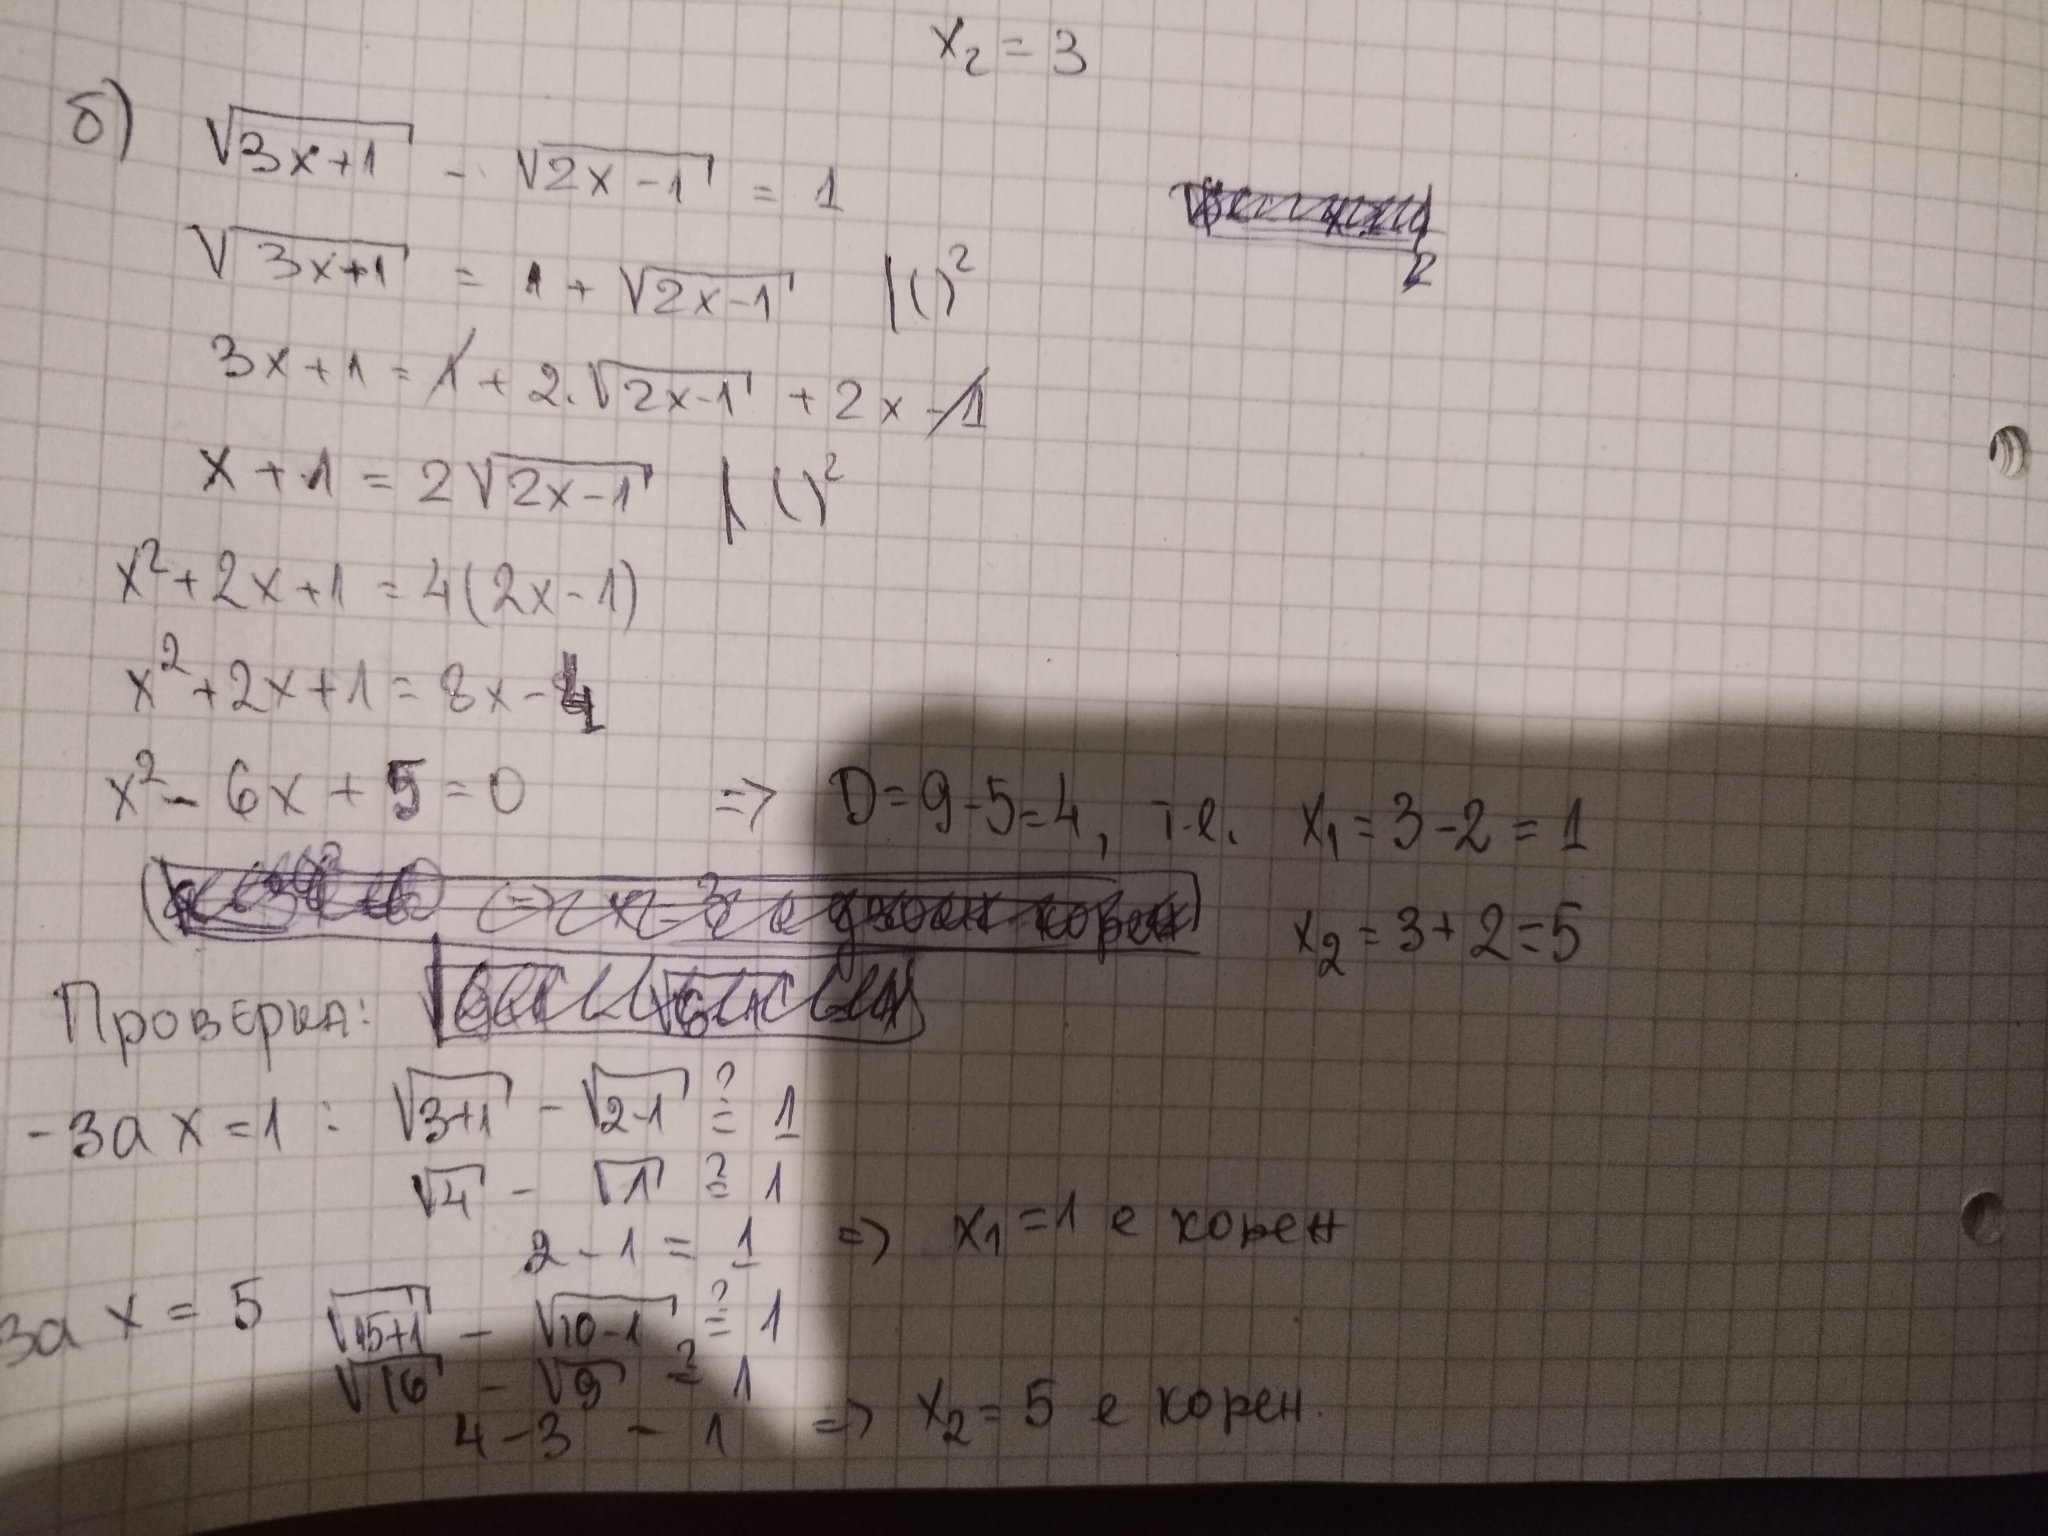 x₂ = 3
б) √(3x+1) - √(2x-1) = 1
√(3x+1) = 1 + √(2x-1) |()²
3x+1 = 1 + 2.√(2x-1) + 2x - 1
x + 1 = 2√(2x-1) | ()²
x² + 2x + 1 = 4(2x-1)
x² + 2x + 1 = 8x - 4
x² - 6x + 5 = 0 => D = 9 - 5 = 4, т.е. x₁ = 3 - 2 = 1
x₂ = 3 + 2 = 5
Проверка:
- за x = 1 : √(3+1) - √(2-1) ≟ 1
√4 - √1 ≟ 1
2 - 1 = 1 => x₁ = 1 е корен
за x = 5 √(15+1) - √(10-1) ≟ 1
√16 - √9 ≟ 1
4 - 3 - 1 => x₂ = 5 е корен.